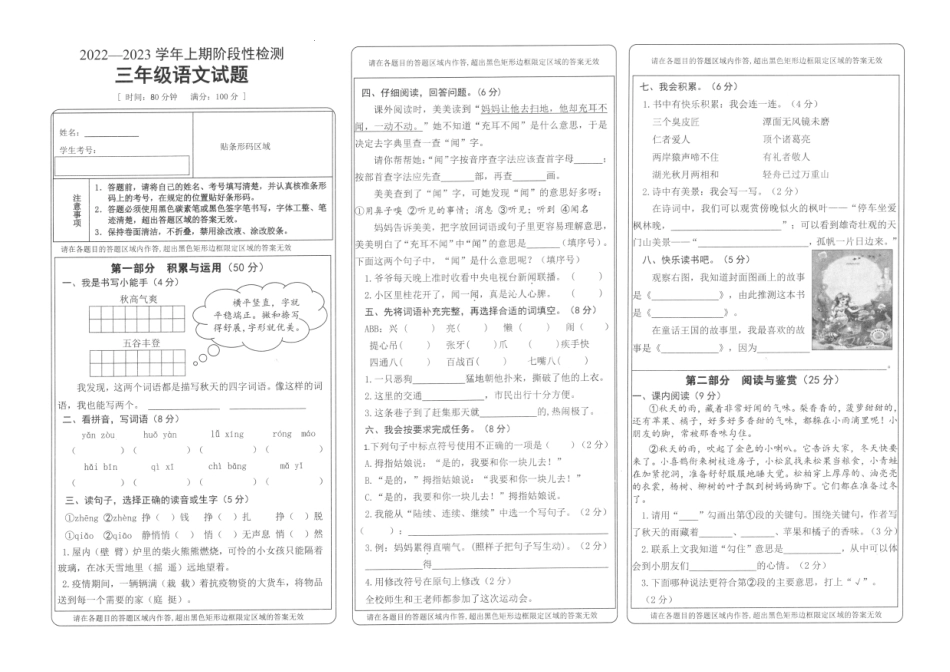 2022—2023 学年上期阶段性检测
三年级语文试题
[ 时间：80 分钟 满分：100 分 ]
姓名：
学生考号：
贴条形码区域
注意事项
1．答题前，请将自己的姓名、考号填写清楚，并认真核准条形
码上的考号，在规定的位置贴好条形码。
2．答题必须使用黑色碳素笔或黑色签字笔书写，字体工整、笔
迹清楚，超出答题区域的答案无效。
3．保持卷面清洁，不折叠，禁用涂改液、涂改胶条。
请在各题目的答题区域内作答,超出黑色矩形边框限定区域的答案无效
第一部分 积累与运用（50 分）
一、我是书写小能手（4 分）
秋高气爽
五谷丰登
横平竖直，字就
平稳端正。撇和捺写
得舒展,字形就优美。
我发现，这两个词语都是描写秋天的四字词语。像这样的词
语，我也能写两个。
二、看拼音，写词语（8 分）
yān zòu huǒ yàn lǚ xíng róng máo
（ ） （ ） （ ） （ ）
hǎi bīn qì xī chì bǎng mǎ yǐ
（ ） （ ） （ ） （ ）
三、读句子，选择正确的读音或生字（5 分）
①zhēng ②zhèng 挣（ ）钱 挣（ ）扎 挣（ ）脱
①qiāo ②qiǎo 静悄悄（ ） 悄（ ）无声息 悄（ ）然
1.屋内（壁 臂）炉里的柴火熊熊燃烧，可怜的小女孩只能隔着
玻璃，在冰天雪地里（摇 遥）远地望着。
2.疫情期间，一辆辆满（栽 载）着抗疫物资的大货车，将物品
送到每一个需要的家（庭 挺）。
请在各题目的答题区域内作答,超出黑色矩形边框限定区域的答案无效
请在各题目的答题区域内作答,超出黑色矩形边框限定区域的答案无效
四、仔细阅读，回答问题。（6 分）
课外阅读时，美美读到“妈妈让他去扫地，他却充耳不
闻，一动不动。”她不知道“充耳不闻”是什么意思，于是
决定去字典里查一查“闻”字。
请你帮帮她：“闻”字按音序查字法应该查首字母 ；
按部首查字法应先查 部，再查 画。
美美查到了“闻”字，可她发现“闻”的意思好多呀：
①用鼻子嗅 ②听见的事情；消息 ③听见；听到 ④闻名
妈妈告诉美美，把字放回词语或句子里更容易理解意思，
美美明白了“充耳不闻”中“闻”的意思是 （填序号）。
下面这两个句子中，“闻”是什么意思呢？（填序号）
1.爷爷每天晚上准时收看中央电视台新闻联播。（ ）
2.小区里桂花开了，闻一闻，真是沁人心脾。（ ）
五、先将词语补充完整，再选择合适的词填空。（8 分）
ABB：兴（ ） 亮（ ） 懒（ ） 闹（ ）
提心吊（ ） 张牙（ ）爪 （ ）疾手快
四通八（ ） 百战百（ ） 七嘴八（ ）
1.一只恶狗 猛地朝他扑来，撕破了他的上衣。
2.这里的交通 ，市民出行十分方便。
3.这条巷子到了赶集那天就 的,热闹极了。
六、我会按要求完成任务。（8 分）
1.下列句子中标点符号使用不正确的一项是（ ）（2 分）
A.拇指姑娘说：“是的，我要和你一块儿去！”
B.“是的，”拇指姑娘说：“我要和你一块儿去！”
C.“是的，我要和你一块儿去！”拇指姑娘说。
2.我能从“陆续、连续、继续”中选一个写句子。（2 分）
（ ）：
3.例：妈妈累得直喘气。(照样子把句子写生动)。（2 分）
得
4.用修改符号在原句上修改（2 分）
全校师生和王老师都参加了这次运动会。
请在各题目的答题区域内作答,超出黑色矩形边框限定区域的答案无效
请在各题目的答题区域内作答,超出黑色矩形边框限定区域的答案无效
七、我会积累。（6 分）
1.书中有快乐积累：我会连一连。（4 分）
三个臭皮匠 潭面无风镜未磨
仁者爱人 顶个诸葛亮
两岸猿声啼不住 有礼者敬人
湖光秋月两相和 轻舟已过万重山
2.诗中有美景：我会写一写。（2 分）
在诗词中，我们可以观赏傍晚似火的枫叶——“停车坐爱
枫林晚， ”；可以看到雄奇壮观的天
门山美景——“ ，孤帆一片日边来。”
八、快乐读书吧。（5 分）
观察右图，我知道封面图画上的故事
是《 》，由此推测这本书
是《 》。
在童话王国的故事里，我最喜欢的故
事是《 》，因为
。
第二部分 阅读与鉴赏（25 分）
一、课内阅读（9 分）
①秋天的雨，藏着非常好闻的气味。梨香香的，菠萝甜甜的，
还有苹果、橘子，好多好多香甜的气味，都躲在小雨滴里呢！小
朋友的脚，常被那香味勾住。
②秋天的雨，吹起了金色的小喇叭。它告诉大家，冬天快要
来了。小喜鹊衔来树枝造房子，小松鼠找来松果当粮食，小青蛙
在加紧挖洞，准备好舒舒服服地睡大觉。松柏穿上厚厚的、油亮亮
的衣裳，杨树、柳树的叶子飘到树妈妈脚下。它们都在准备过冬
了。
1.请用“ ”勾画出第①段的关键句。围绕关键句，作者写
了秋天的雨藏着 、 、苹果和橘子的香味。（3 分）
2.联系上文我知道“勾住”意思是 ，从中可以体
会到小朋友们 的心情。（2 分）
3.下面哪种说法更符合第②段的主要意思。打上“√”。
（2 分）
请在各题目的答题区域内作答,超出黑色矩形边框限定区域的答案无效